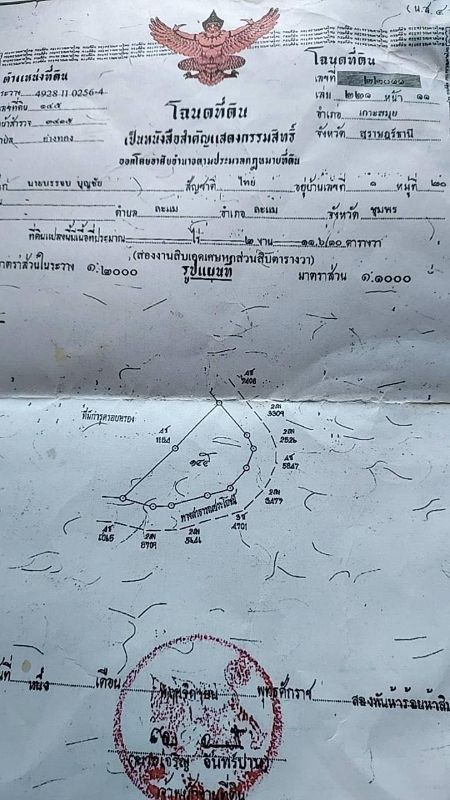 (น.ส. ๔
โฉนดที่ดิน
ตำแหน่งที่ดิน
4928 11 0256-4
เลขที่
เล่ม ๒๒๑ หน้า ๑๑
เลขที่ดิน ๑๔๕
อำเภอ เกาะสมุย
โฉนดที่ดิน
จังหวัด สุราษฎร์ธานี
อ่างทอง
เป็นหนังสือสำคัญแสดงกรรมสิทธิ์
ออกโดยอาศัยอำนาจตามประมวลกฎหมายที่ดิน
นายบรรจบ บุญชัย สัญชาติ ไทย อยู่บ้านเลขที่ ๑ หมู่ที่ ๒๐
ตำบล ละแม อำเภอ ละแม จังหวัด ชุมพร
ที่ดินแปลงนี้เนื้อที่ประมาณ ไร่ ๒ งาน ๑๑.๖/๑๐ ตารางวา
(สองงานสิบเอดเศษหกส่วนสิบตารางวา)
มาตราส่วนในระวาง ๑:๒๐๐๐ รูปแผนที่ มาตราส่วน ๑:๑๐๐๐
ที่มีการครอบครอง
3309
2526
5847
3477
4701
8709
๑๔๕
ทางสาธารณประโยชน์
หนึ่ง เดือน พฤศจิกายน พุทธศักราช สองพันห้าร้อยห้าสิบ
(นายเจริญ จันทร์ปาน)
เจ้าพนักงานที่ดิน